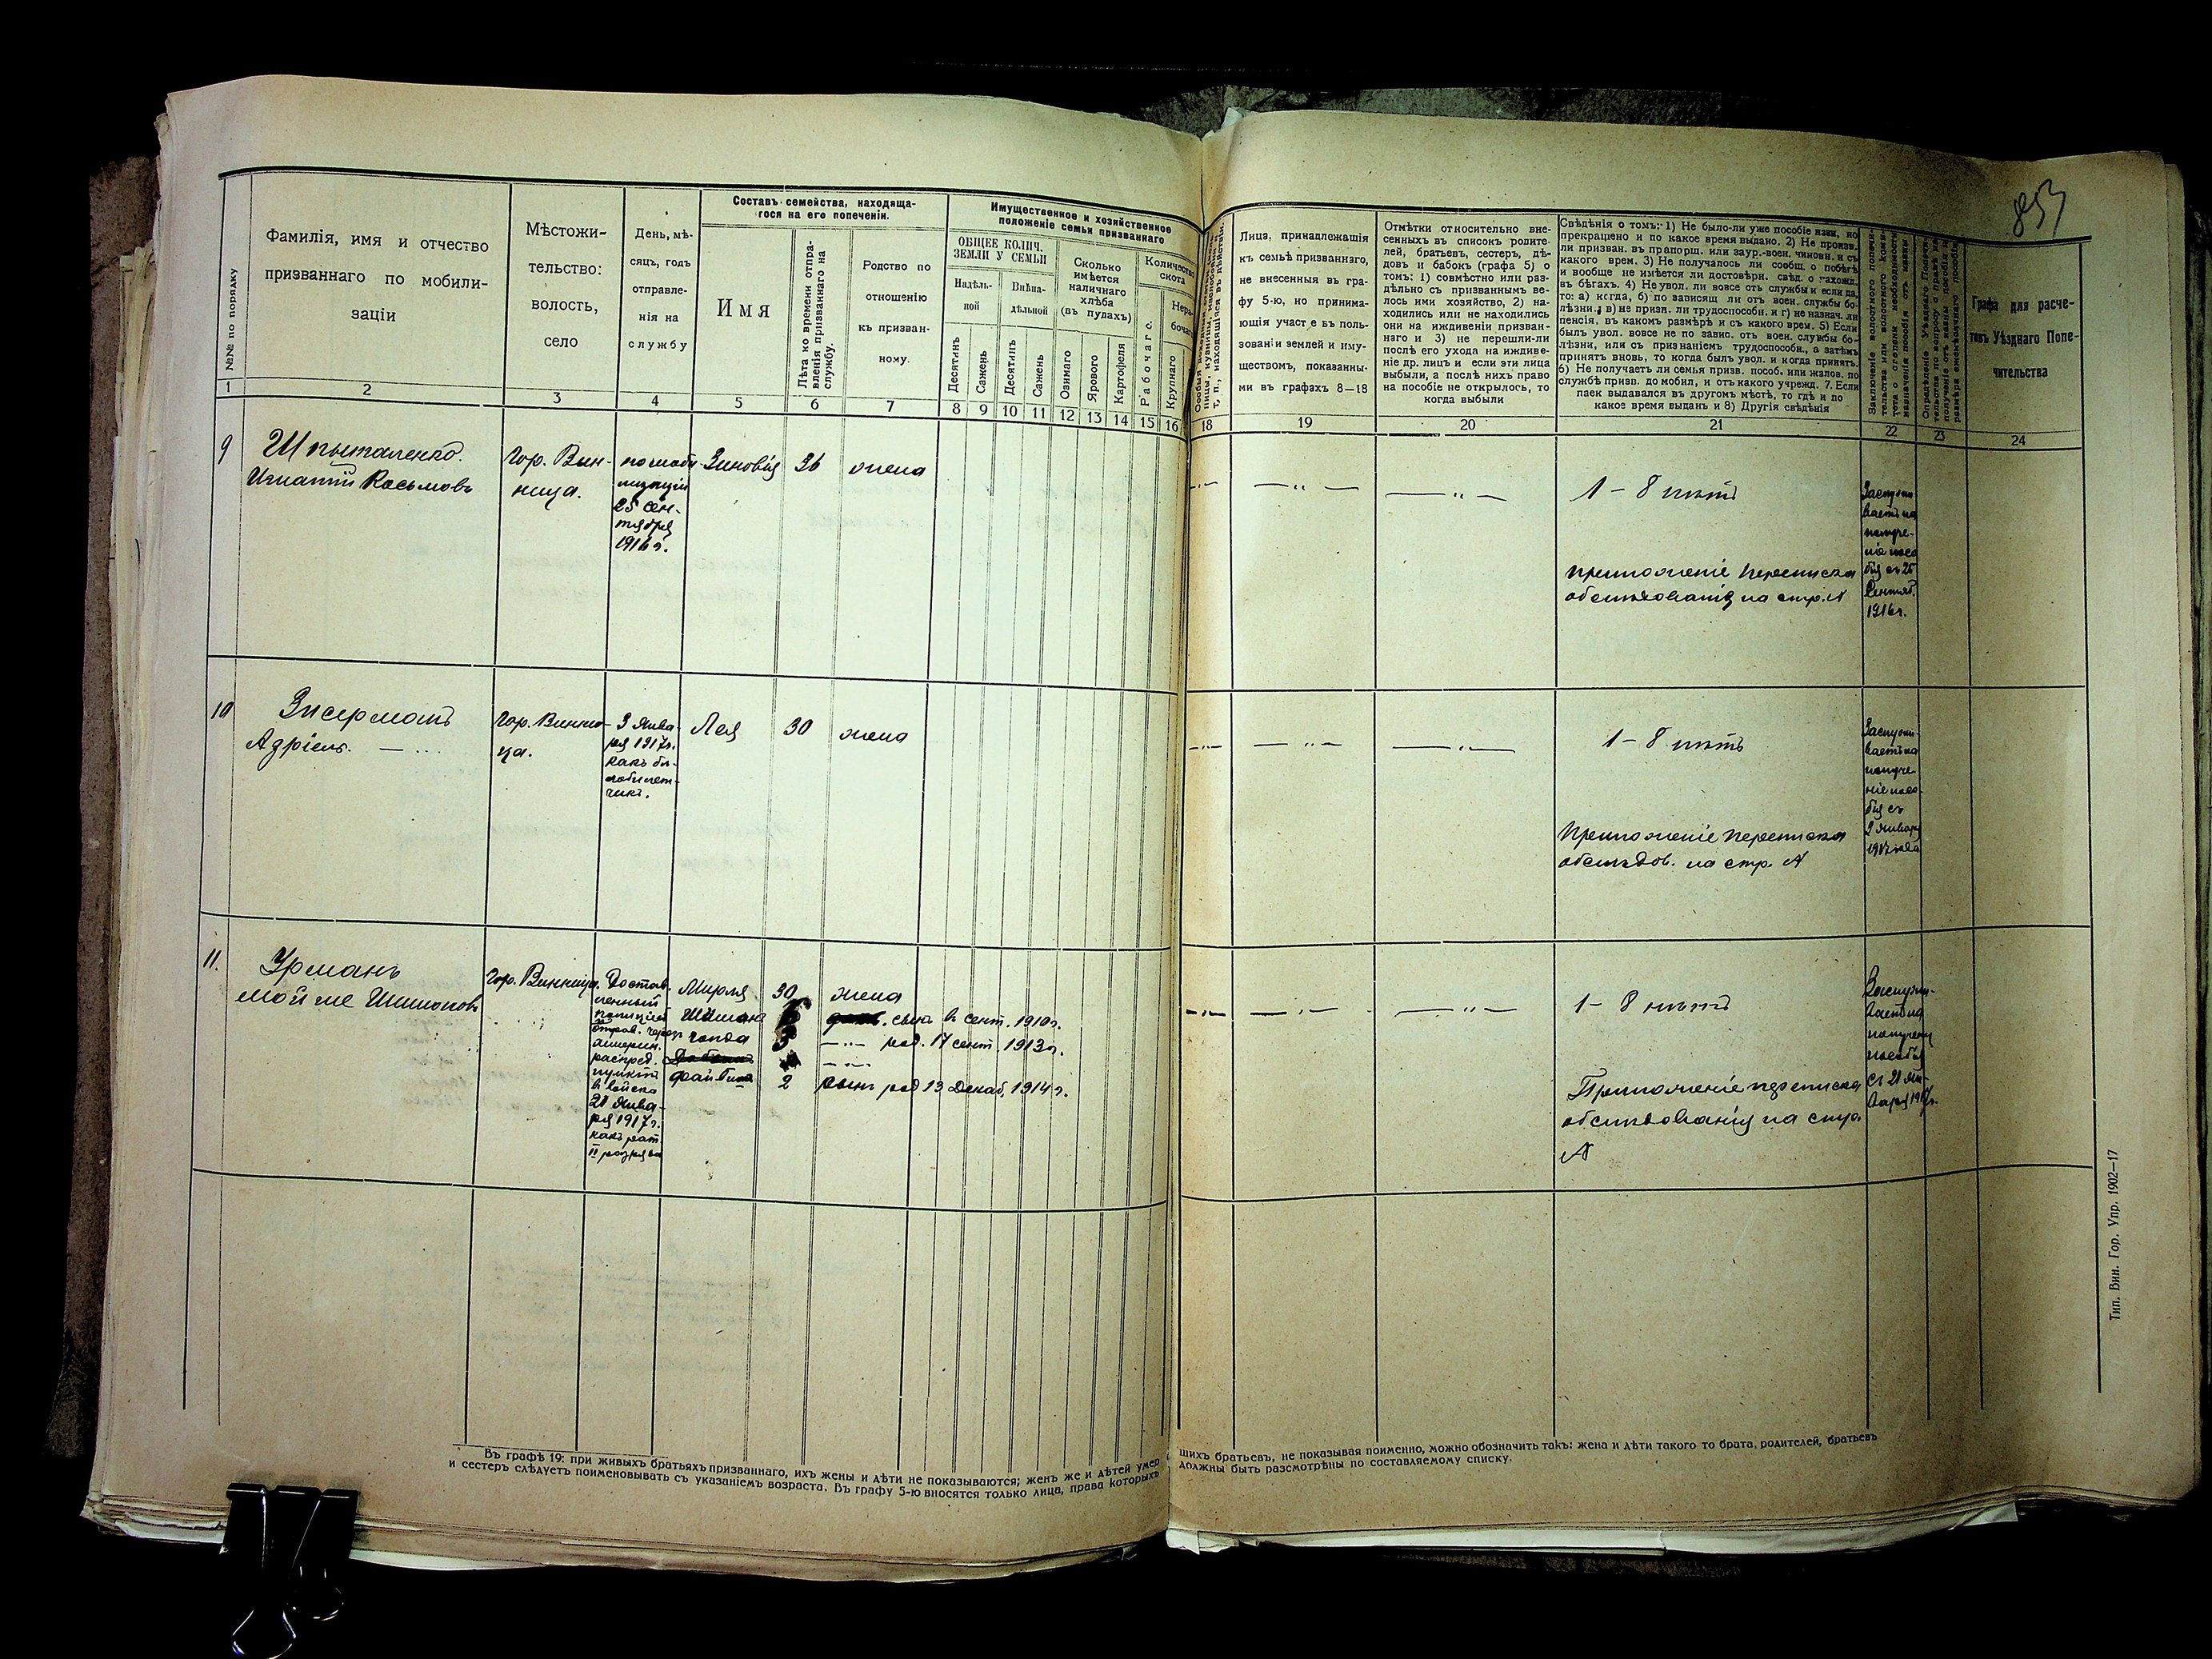 853
№№ по порядку
Фамилія, имя и отчество
призваннаго по мобили-
заціи
Мѣстожи-
тельство:
волость,
село
День, мѣ-
сяцъ, годъ
отправле-
нія на
службу
Составъ семейства, находяща-
гося на его попеченіи.
Имя
Лѣта ко времени отпра-
вленія призваннаго на
службу.
Родство по
отношенію
къ призван-
ному.
Имущественное и хозяйственное
положеніе семьи призваннаго
ОБЩЕЕ КОЛИЧ.
ЗЕМЛИ У СЕМЬИ
Надѣль-
ной
Внѣна-
дѣльной
Десятинъ
Сажень
Десятинъ
Сажень
Сколько
имѣется
наличнаго
хлѣба
(въ пудахъ)
Озимаго
Ярового
Картофеля
Количество
скота
Рабочаго
Крупнаго
Лица, принадлежащія
къ семьѣ призваннаго,
не внесенныя въ гра-
фу 5-ю, но принима-
ющія участіе въ поль-
зованіи землей и иму-
ществомъ, показанны-
ми въ графахъ 8—18
Отмѣтки относительно вне-
сенныхъ въ списокъ родите-
лей, братьевъ, сестеръ, дѣ-
довъ и бабокъ (графа 5) о
томъ: 1) совмѣстно или раз-
дѣльно съ призваннымъ ве-
лось ими хозяйство, 2) на-
ходились или не находились
они на иждивеніи призван-
наго и 3) не перешли-ли
послѣ его ухода на иждиве-
ніе др. лицъ и если эти лица
выбыли, а послѣ нихъ право
на пособіе не открылось, то
когда выбыли
Свѣдѣнія о томъ: 1) Не было-ли уже пособіе назн, но
прекращено и по какое время выдано. 2) Не произв.
ли призван. въ прапорщ. или заур.-воен. чиновн. и съ
какого врем. 3) Не получалось ли сообщ. о побѣгѣ
и вообще не имѣется ли достовѣрн. свѣд. о нахожд.
въ бѣгахъ. 4) Не увол. ли вовсе отъ службы и если да,
то: а) когда, б) по зависящ ли отъ воен. службы бо-
лѣзни, в) не призн. ли трудоспособн. и г) не назнач. ли
пенсія, въ какомъ размѣрѣ и съ какого врем. 5) Если
былъ увол. вовсе не по завис. отъ воен. службы бо-
лѣзни, или съ признаніемъ трудоспособн., а затѣмъ
принятъ вновь, то когда былъ увол. и когда принятъ.
6) Не получаетъ ли семья призв. пособ. или жалов. по
службѣ призв. до мобил, и отъ какого учрежд. 7. Если
паек выдавался въ другомъ мѣстѣ, то гдѣ и по
какое время выданъ и 8) Другія свѣдѣнія
Графа для расче-
товъ Уѣзднаго Попе-
чительства
1 2 3 4 5 6 7 8 9 10 11 12 13 14 15 16 18 19 20 21 22 23 24
9
Игнатій Косьмовъ
Гор. Вин-
ница.
по моби-
лизаціи
25 сен-
тября
1916 г.
Зиновія 36 жена
1 - 8 нѣтъ
приложеніе переписка
обслѣдованія на стр. А
Заслужи-
ваетъ на
получе-
ніе посо
бія съ 25
Сентяб.
1916 г.
10
Зисерманъ
Адріель.
Гор. Винни-
ца.
3 Янва-
ря 1917 г.
какъ бѣ-
лобилет-
чикъ.
Лея 30 жена
1 - 8 нѣтъ
Приложеніе переписка
обслѣдов. на стр. А
Заслужи-
ваетъ на
получе-
ніе посо-
бія съ
3 Января
1917 года
11.
Урманъ
Мойше Шимоновъ
Гор. Винница.
Достав-
ленный
полиціей
отправ. через
распред.
пунктъ
в войска
21 Янва-
ря 1917 г.
какъ рат.
II разряда
Мирля 30 жена
сынъ в сент. 1910 г.
5 род. 17 сент. 1913 г.
2 сынъ род 13 Декаб. 1914 г.
1 - 8 нѣтъ
Приложеніе переписка
обслѣдованія на стр.
А
Заслужи-
ваетъ на
получен
пособія
съ 21 Ян-
варя 1917 г.
Въ графѣ 19: при живыхъ братьяхъ призваннаго, ихъ жены и дѣти не показываются; женъ же и дѣтей умер шихъ братьевъ, не показывая поименно, можно обозначить такъ: жена и дѣти такого то брата, родителей, братьевъ
и сестеръ слѣдуетъ поименовывать съ указаніемъ возраста. Въ графу 5-ю вносятся только лица, права которыхъ должны быть разсмотрѣны по составляемому списку.
Тип. Вин. Гор. Упр. 1902—17